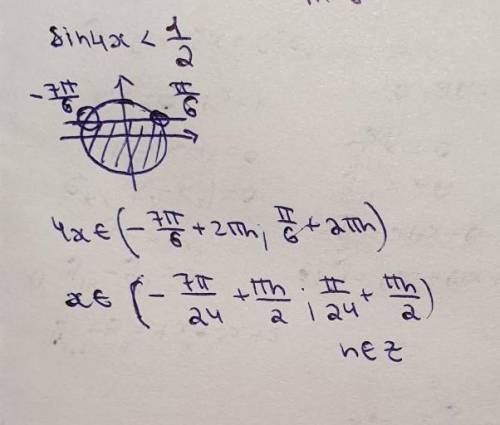 sin4x < 1/2
-7π/6 π/6
4x ∈ (-7π/6 + 2πn; π/6 + 2πn)
x ∈ (-7π/24 + πn/2; π/24 + πn/2)
n ∈ z